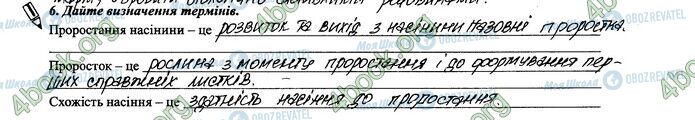 6. Дайте визначення термінів.
Проростання насінини – це розвиток та вихід з насінини назовні проростка.
Проросток – це рослина з моменту проростання і до формування пер-
ших справжніх листків.
Схожість насіння – це здатність насіння до проростання.